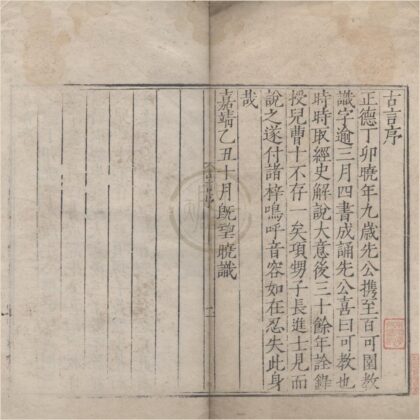 古言序
正德丁卯曉年九歲先公攜至百可園教
識字逾三月四書成誦先公喜曰可教也
時時取經史解說大意後三十餘年詮錄
授兒曹十不存一矣項甥子長進士見而
說之遂付諸梓嗚呼音容如在忍失此身
哉
嘉靖乙丑十月旣望曉識
古言序